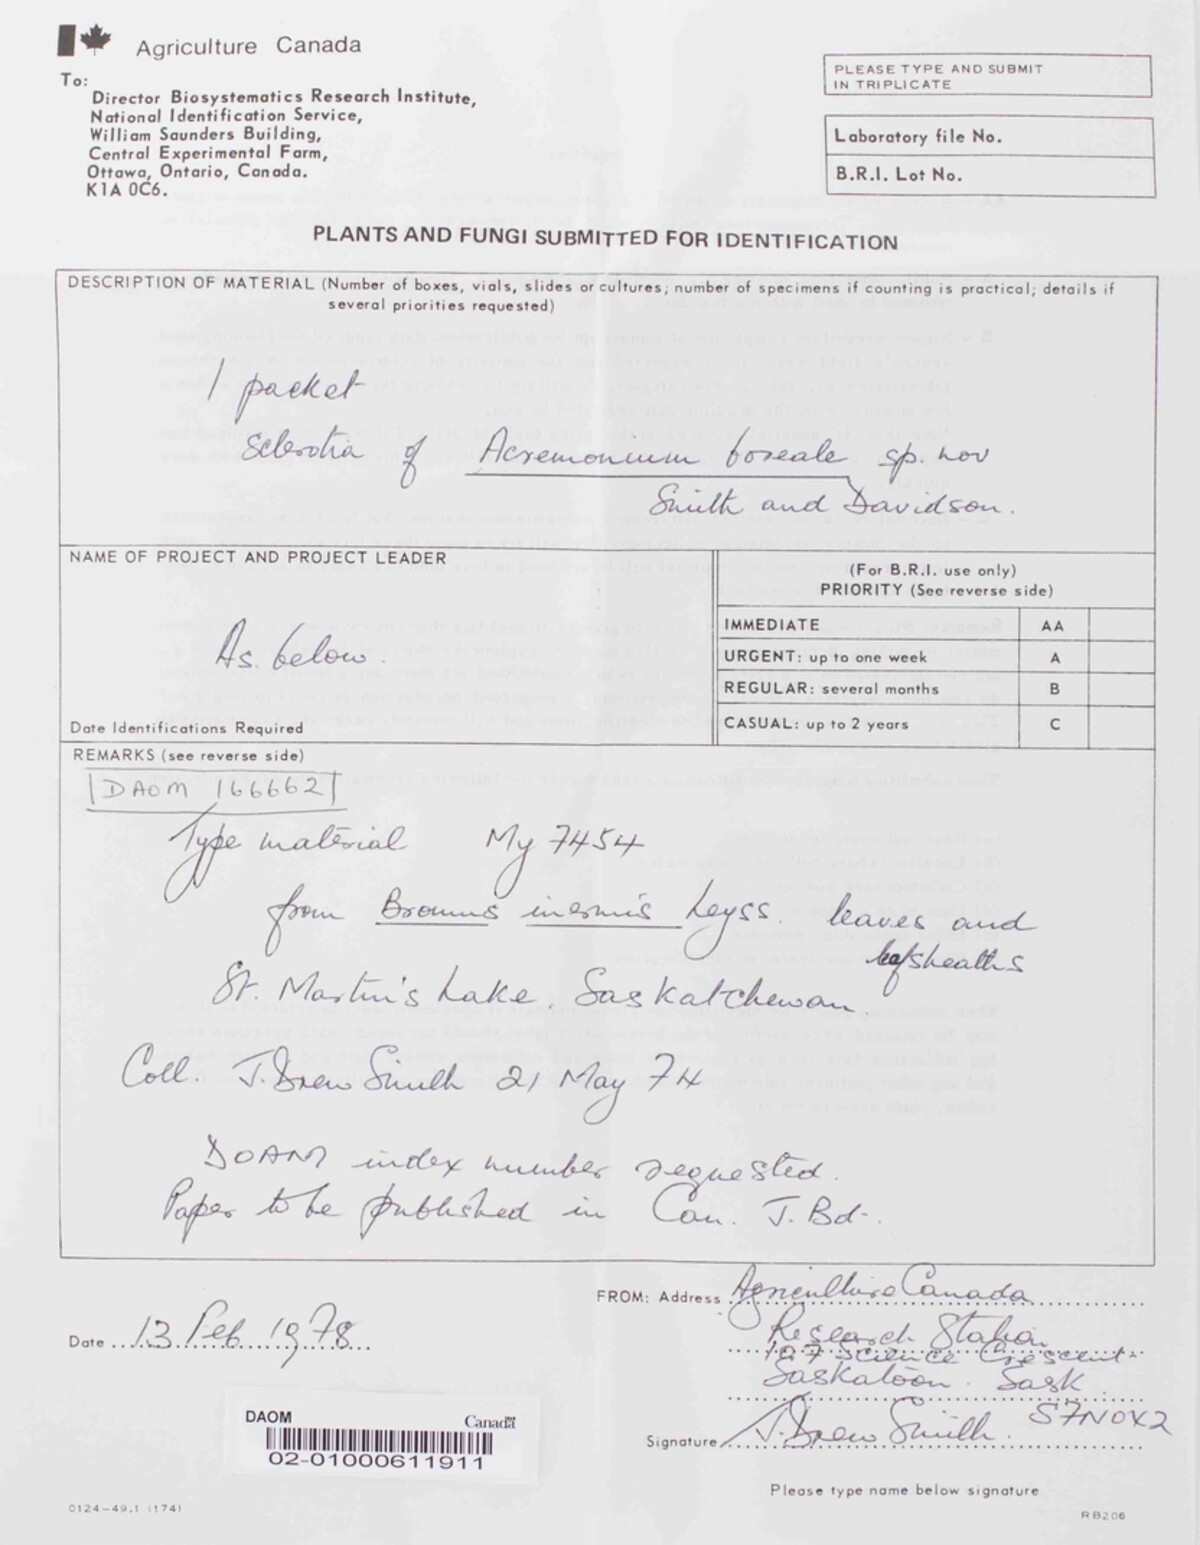 Agriculture Canada
To:
Director Biosystematics Research Institute,
National Identification Service,
William Saunders Building,
Central Experimental Farm,
Ottawa, Ontario, Canada.
K1A 0C6.
PLEASE TYPE AND SUBMIT
IN TRIPLICATE
Laboratory file No.
B.R.I. Lot No.
PLANTS AND FUNGI SUBMITTED FOR IDENTIFICATION
DESCRIPTION OF MATERIAL (Number of boxes, vials, slides or cultures; number of specimens if counting is practical; details if
several priorities requested)
1 packet
Sclerotia of Acremonium boreale sp. nov
Smith and Davidson.
NAME OF PROJECT AND PROJECT LEADER
As below.
Date Identifications Required
(For B.R.I. use only)
PRIORITY (See reverse side)
IMMEDIATE AA
URGENT: up to one week A
REGULAR: several months B
CASUAL: up to 2 years C
REMARKS (see reverse side)
DAOM 166662
Type material My 7454
from Bromus inermis Leyss. leaves and
leafsheaths
St. Martin's Lake. Saskatchewan.
Coll. J. Drew Smith 21 May 74
DOAM index number requested.
Paper to be published in Can. J. Bot.
FROM: Address Agriculture Canada
Research Station
107 Science Crescent
Saskatoon. Sask
S7N0X2
Date 13 Feb 1978
Signature J. Drew Smith.
Please type name below signature
DAOM Canada
02-01000611911
0124-49.1 (174)
RB206